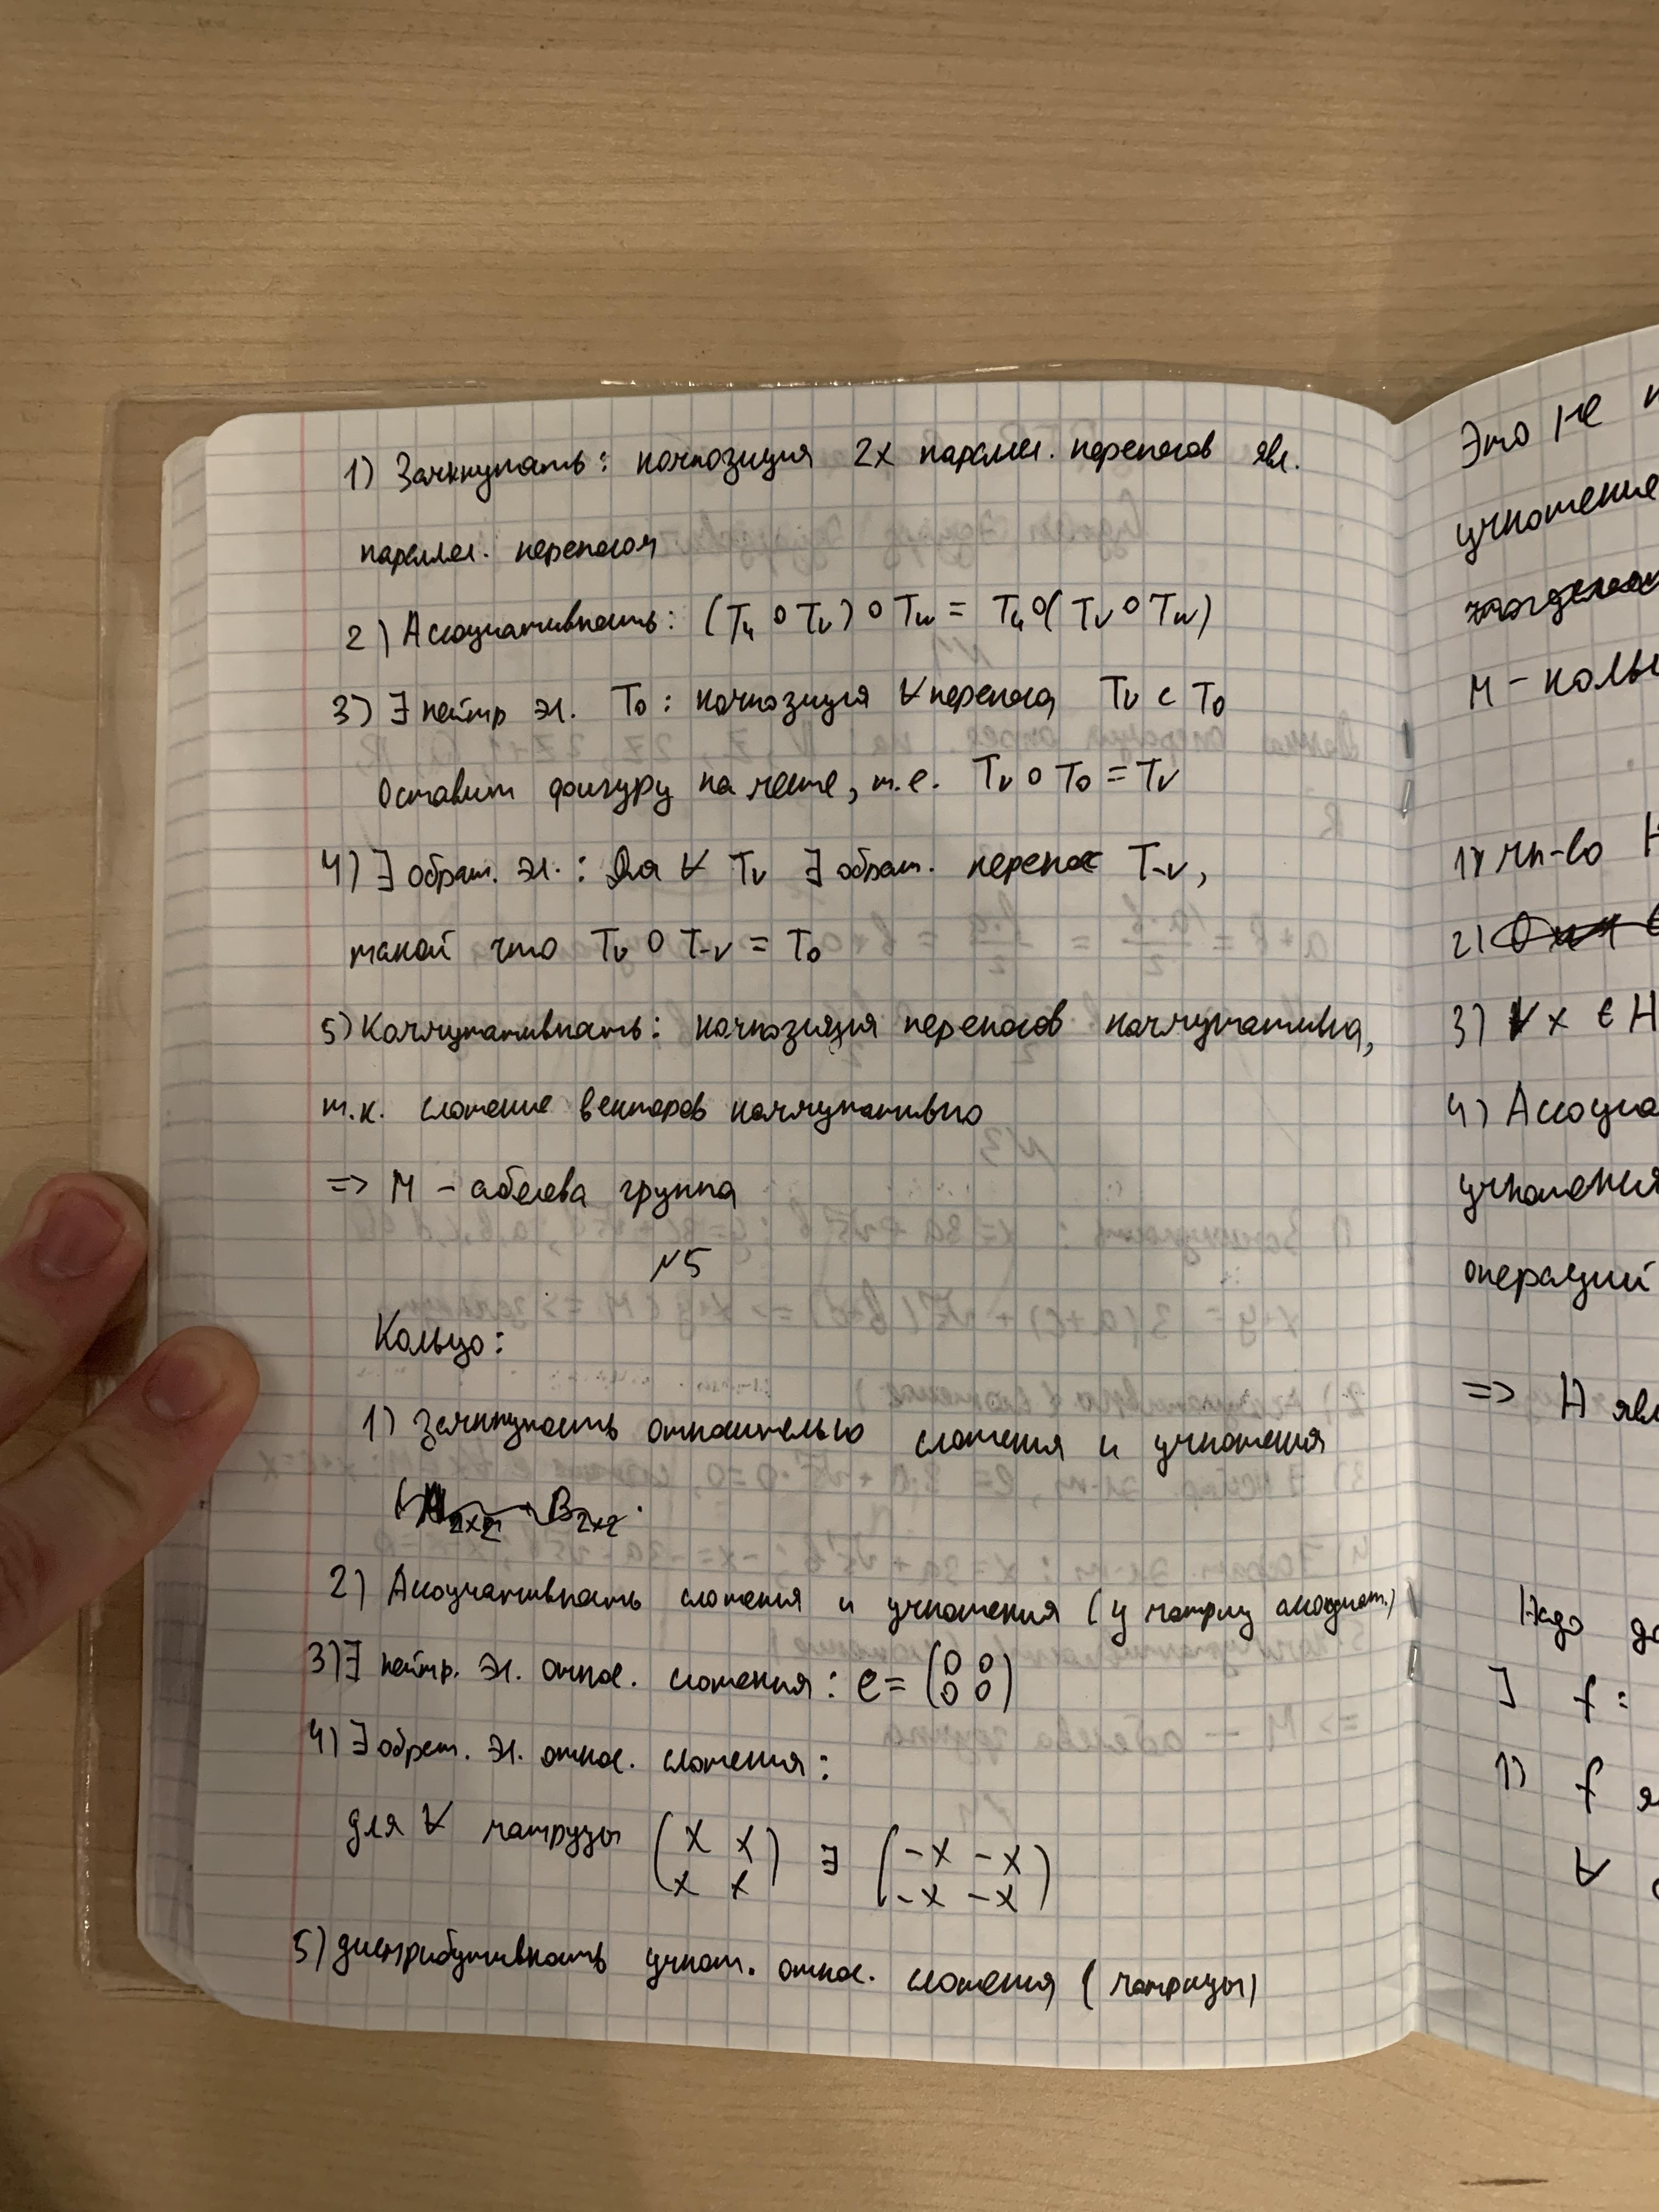 1) Замкнутость: композиция 2х паралл. переносов явл.
паралл. переносом
2) Ассоциативность: (Tu ∘ Tv) ∘ Tw = Tu ∘ (Tv ∘ Tw)
3) ∃ нейтр эл. T₀: композиция ∀ переноса Tv с T₀
оставит фигуру на месте, т.е. Tv ∘ T₀ = Tv
4) ∃ обрат. эл.: Для ∀ Tv ∃ обрат. перенос T-v,
такой что Tv ∘ T-v = T₀
5) Коммутативность: композиция переносов коммутативна,
т.к. сложение векторов коммутативно
=> M - абелева группа
№5
Кольцо:
1) Замкнутость относительно сложения и умножения
2) Ассоциативность сложения и умножения (у матриц ассоциат.)
3) ∃ нейтр. эл. относ. сложения: e = (0 0
0 0)
4) ∃ обрат. эл. относ. сложения:
для ∀ матрицы (x x
x x) ∃ (-x -x
-x -x)
5) дистрибутивность умнож. относ. сложения (матрицы)
Это не
умножение
M - коль
1) мн-во H
2)
3) ∀ x ∈ H
4) Ассоциа
умножения
операций
=> H явл
Надо до
] f:
1) f
∀